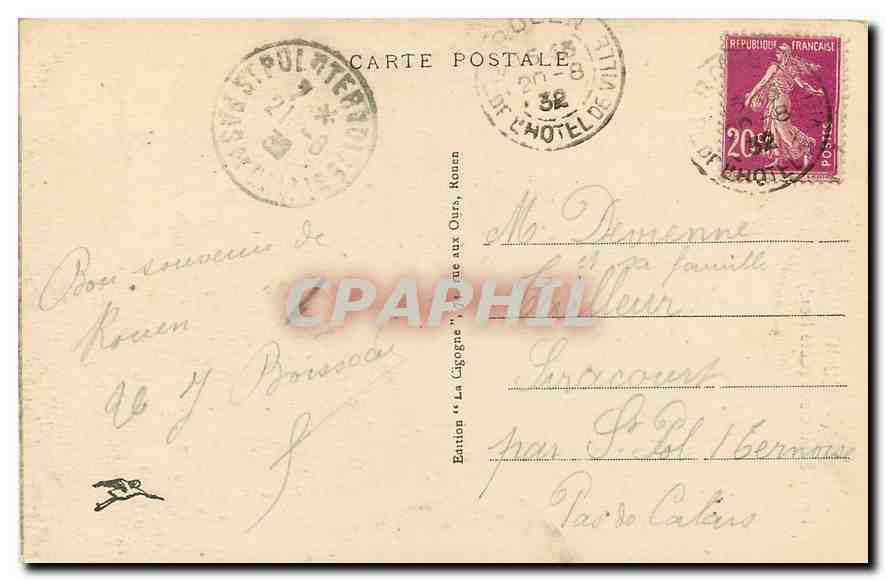 CARTE POSTALE
ROUEN
15 45
20-8
32
DE L'HOTEL DE VILLE
ST POL S/TERNOISE
7 *
21 - 8
32
REPUBLIQUE FRANÇAISE
20c
POSTES
DE L'HOTEL
32
Bon souvenir de
Rouen
J Boisson
Edition " La Cigogne ", 74, rue aux Ours, Rouen
Mr Devienne
et sa famille
Tailleur
Siracourt
par St Pol / Ternoise
Pas de Calais
CPAPHIL